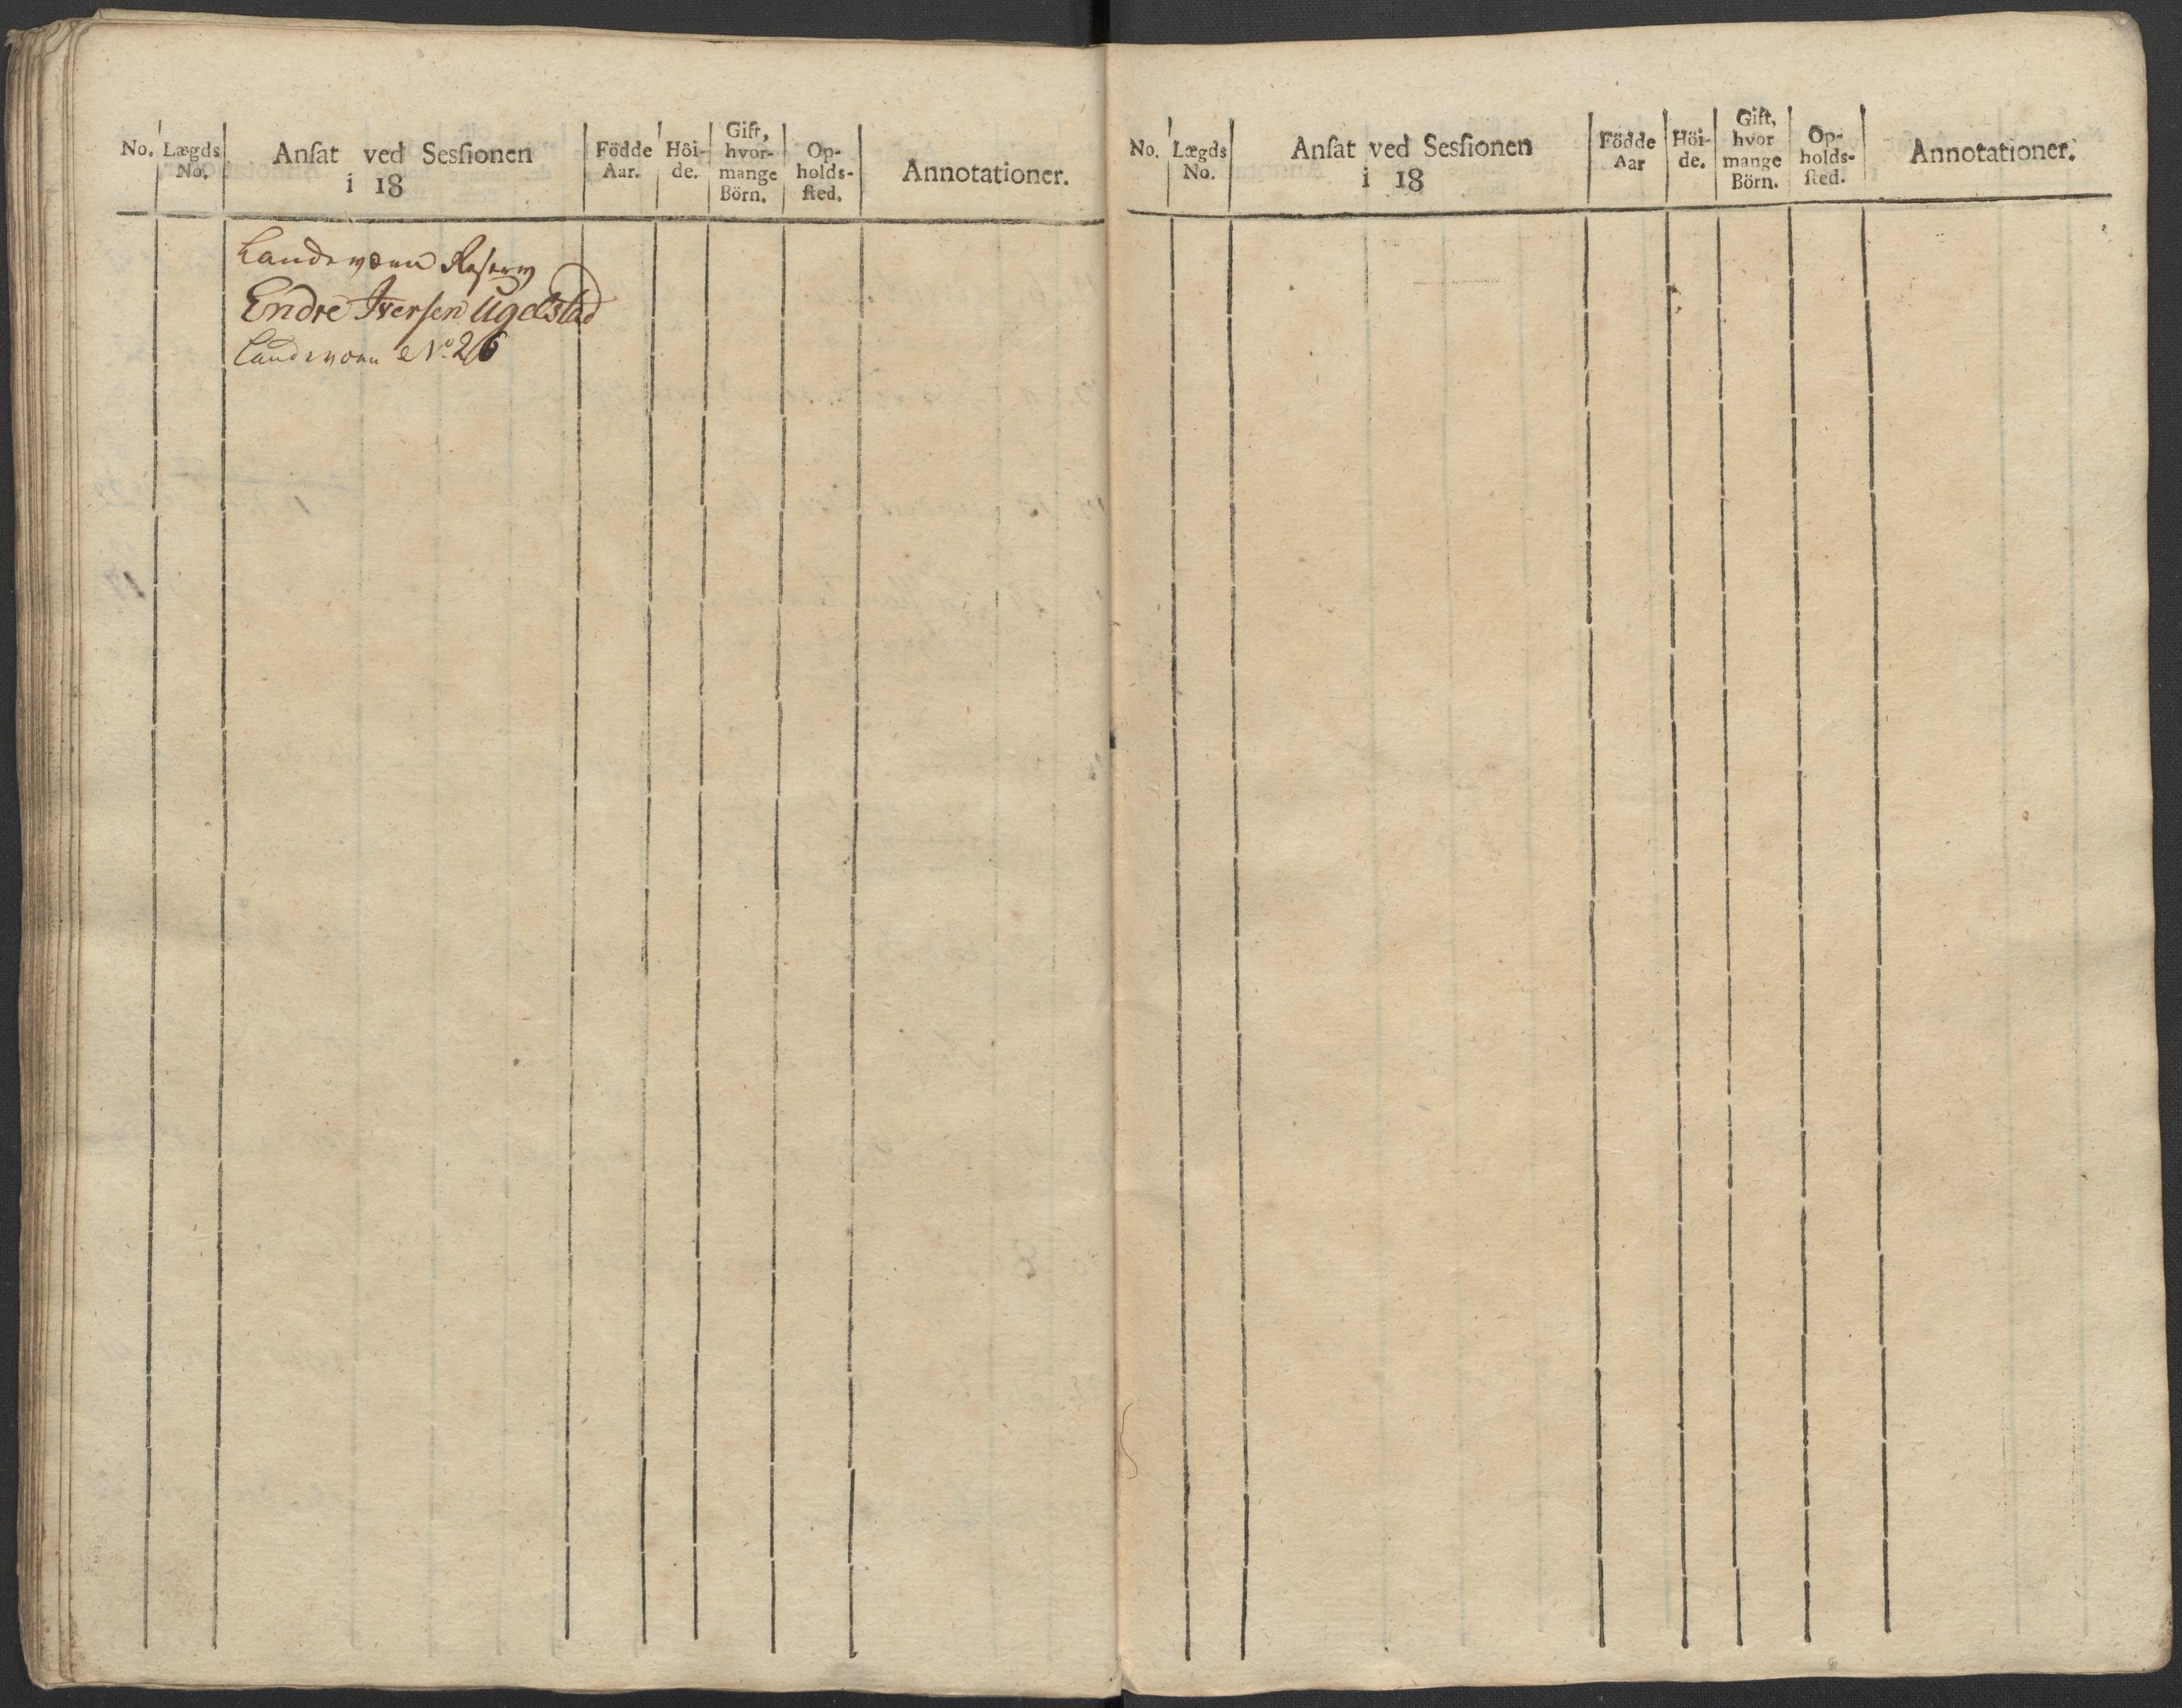 No. Lægds No. Anſat ved Sesſionen i 18 Födde Aar. Höi- de. Gift, hvor- mange Börn. Op- holds- ſted. Annotationer.
Landeværn Reserv
Endre Iversen Ugelstad
Landeværn No. 26
No. Lægds No. Anſat ved Sesſionen i 18 Födde Aar Höi- de. Gift, hvor mange Börn. Op- holds- ſted. Annotationer.